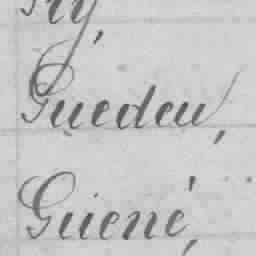 Guedeu,
Guené,